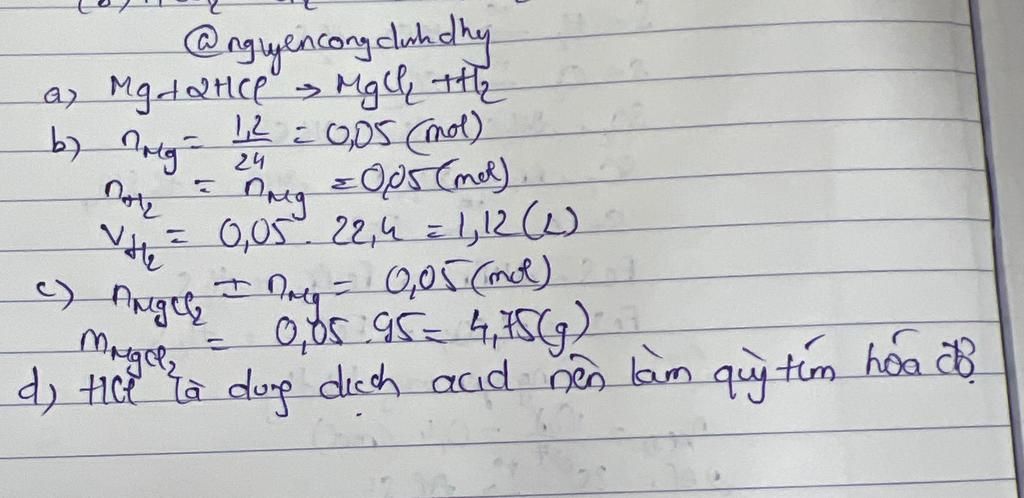 @nguyencongduhdhy
a) Mg + 2HCl → MgCl₂ + H₂
b) nMg = 1,2/24 = 0,05 (mol)
nH₂ = nMg = 0,05 (mol)
VH₂ = 0,05 . 22,4 = 1,12 (L)
c) nMgCl₂ = nMg = 0,05 (mol)
mMgCl₂ = 0,05 . 95 = 4,75 (g)
d) HCl là dung dịch acid nên làm quỳ tím hóa đỏ